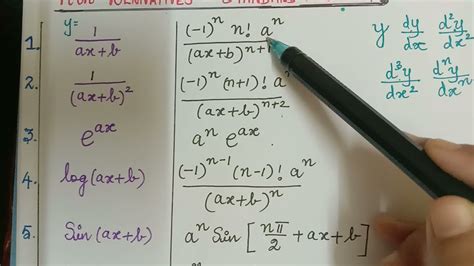 DERIVATIVES STANDARD
y=
1. 1/(ax+b) (-1)^n n! a^n/(ax+b)^{n+1}
2. 1/(ax+b)^2 (-1)^n (n+1)! a^n/(ax+b)^{n+2}
3. e^{ax} a^n e^{ax}.
4. log(ax+b) (-1)^{n-1} (n-1)! a^n/(ax+b)^n
5. Sin(ax+b) a^n Sin[nπ/2 + ax+b]
y dy/dx d^2y/dx^2
d^3y/dx^2 d^ny/dx^n